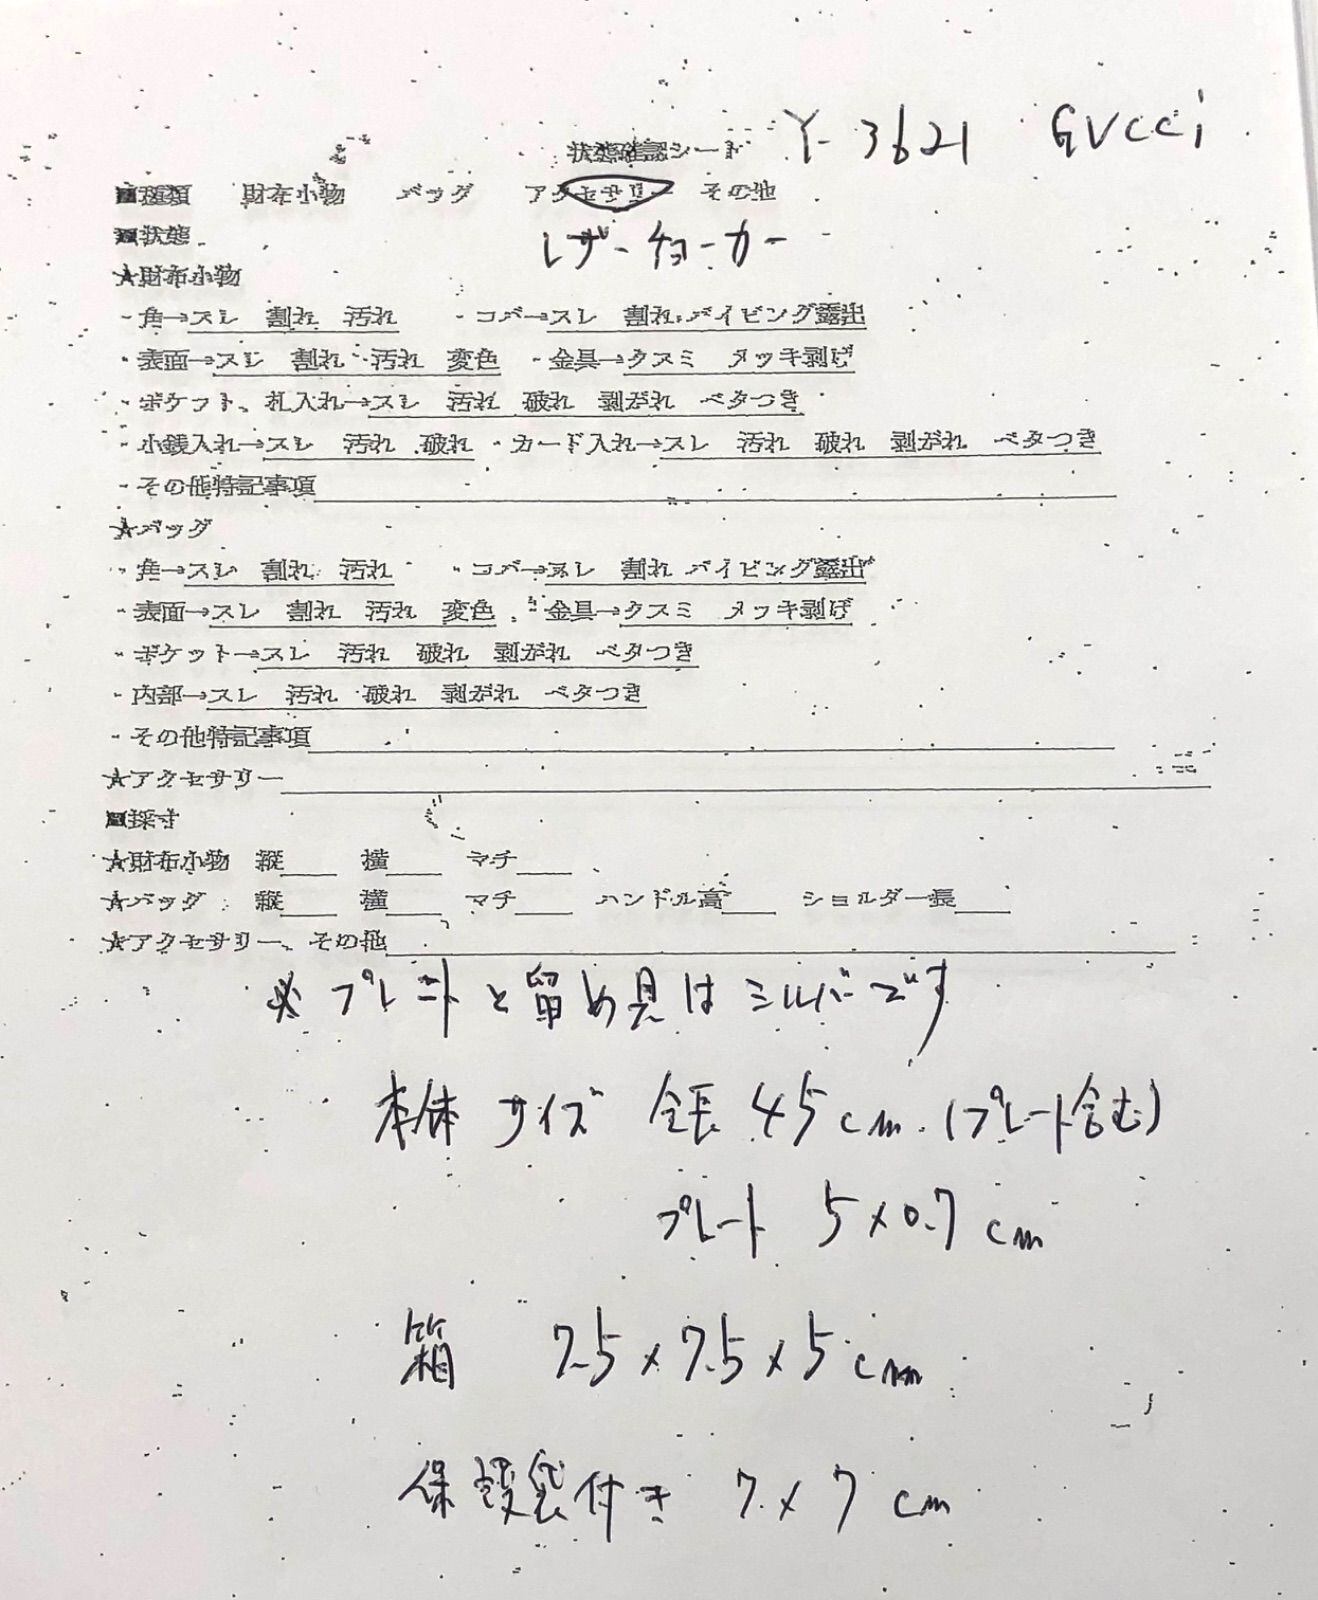 Y-3621 GUCCi
状態確認シート
■種類 財布小物 バッグ アクセサリー その他
■状態 レザーチョーカー
★財布小物
・角→スレ 割れ 汚れ ・コバ→スレ 割れ パイピング露出
・表面→スレ 割れ 汚れ 変色 ・金具→クスミ メッキ剥げ
・ポケット、札入れ→スレ 汚れ 破れ 剥がれ ベタつき
・小銭入れ→スレ 汚れ 破れ ・カード入れ→スレ 汚れ 破れ 剥がれ ベタつき
・その他特記事項
★バッグ
・角→スレ 割れ 汚れ ・コバ→スレ 割れ パイピング露出
・表面→スレ 割れ 汚れ 変色 ・金具→クスミ メッキ剥げ
・ポケット→スレ 汚れ 破れ 剥がれ ベタつき
・内部→スレ 汚れ 破れ 剥がれ ベタつき
・その他特記事項
★アクセサリー
■採寸
★財布小物 縦 横 マチ
★バッグ 縦 横 マチ ハンドル高 ショルダー長
★アクセサリー、その他
※プレートと留め具はシルバーです
本体サイズ 全長45cm (プレート含む)
プレート 5×0.7cm
箱 7.5×7.5×5cm
保護袋付き 7×7cm